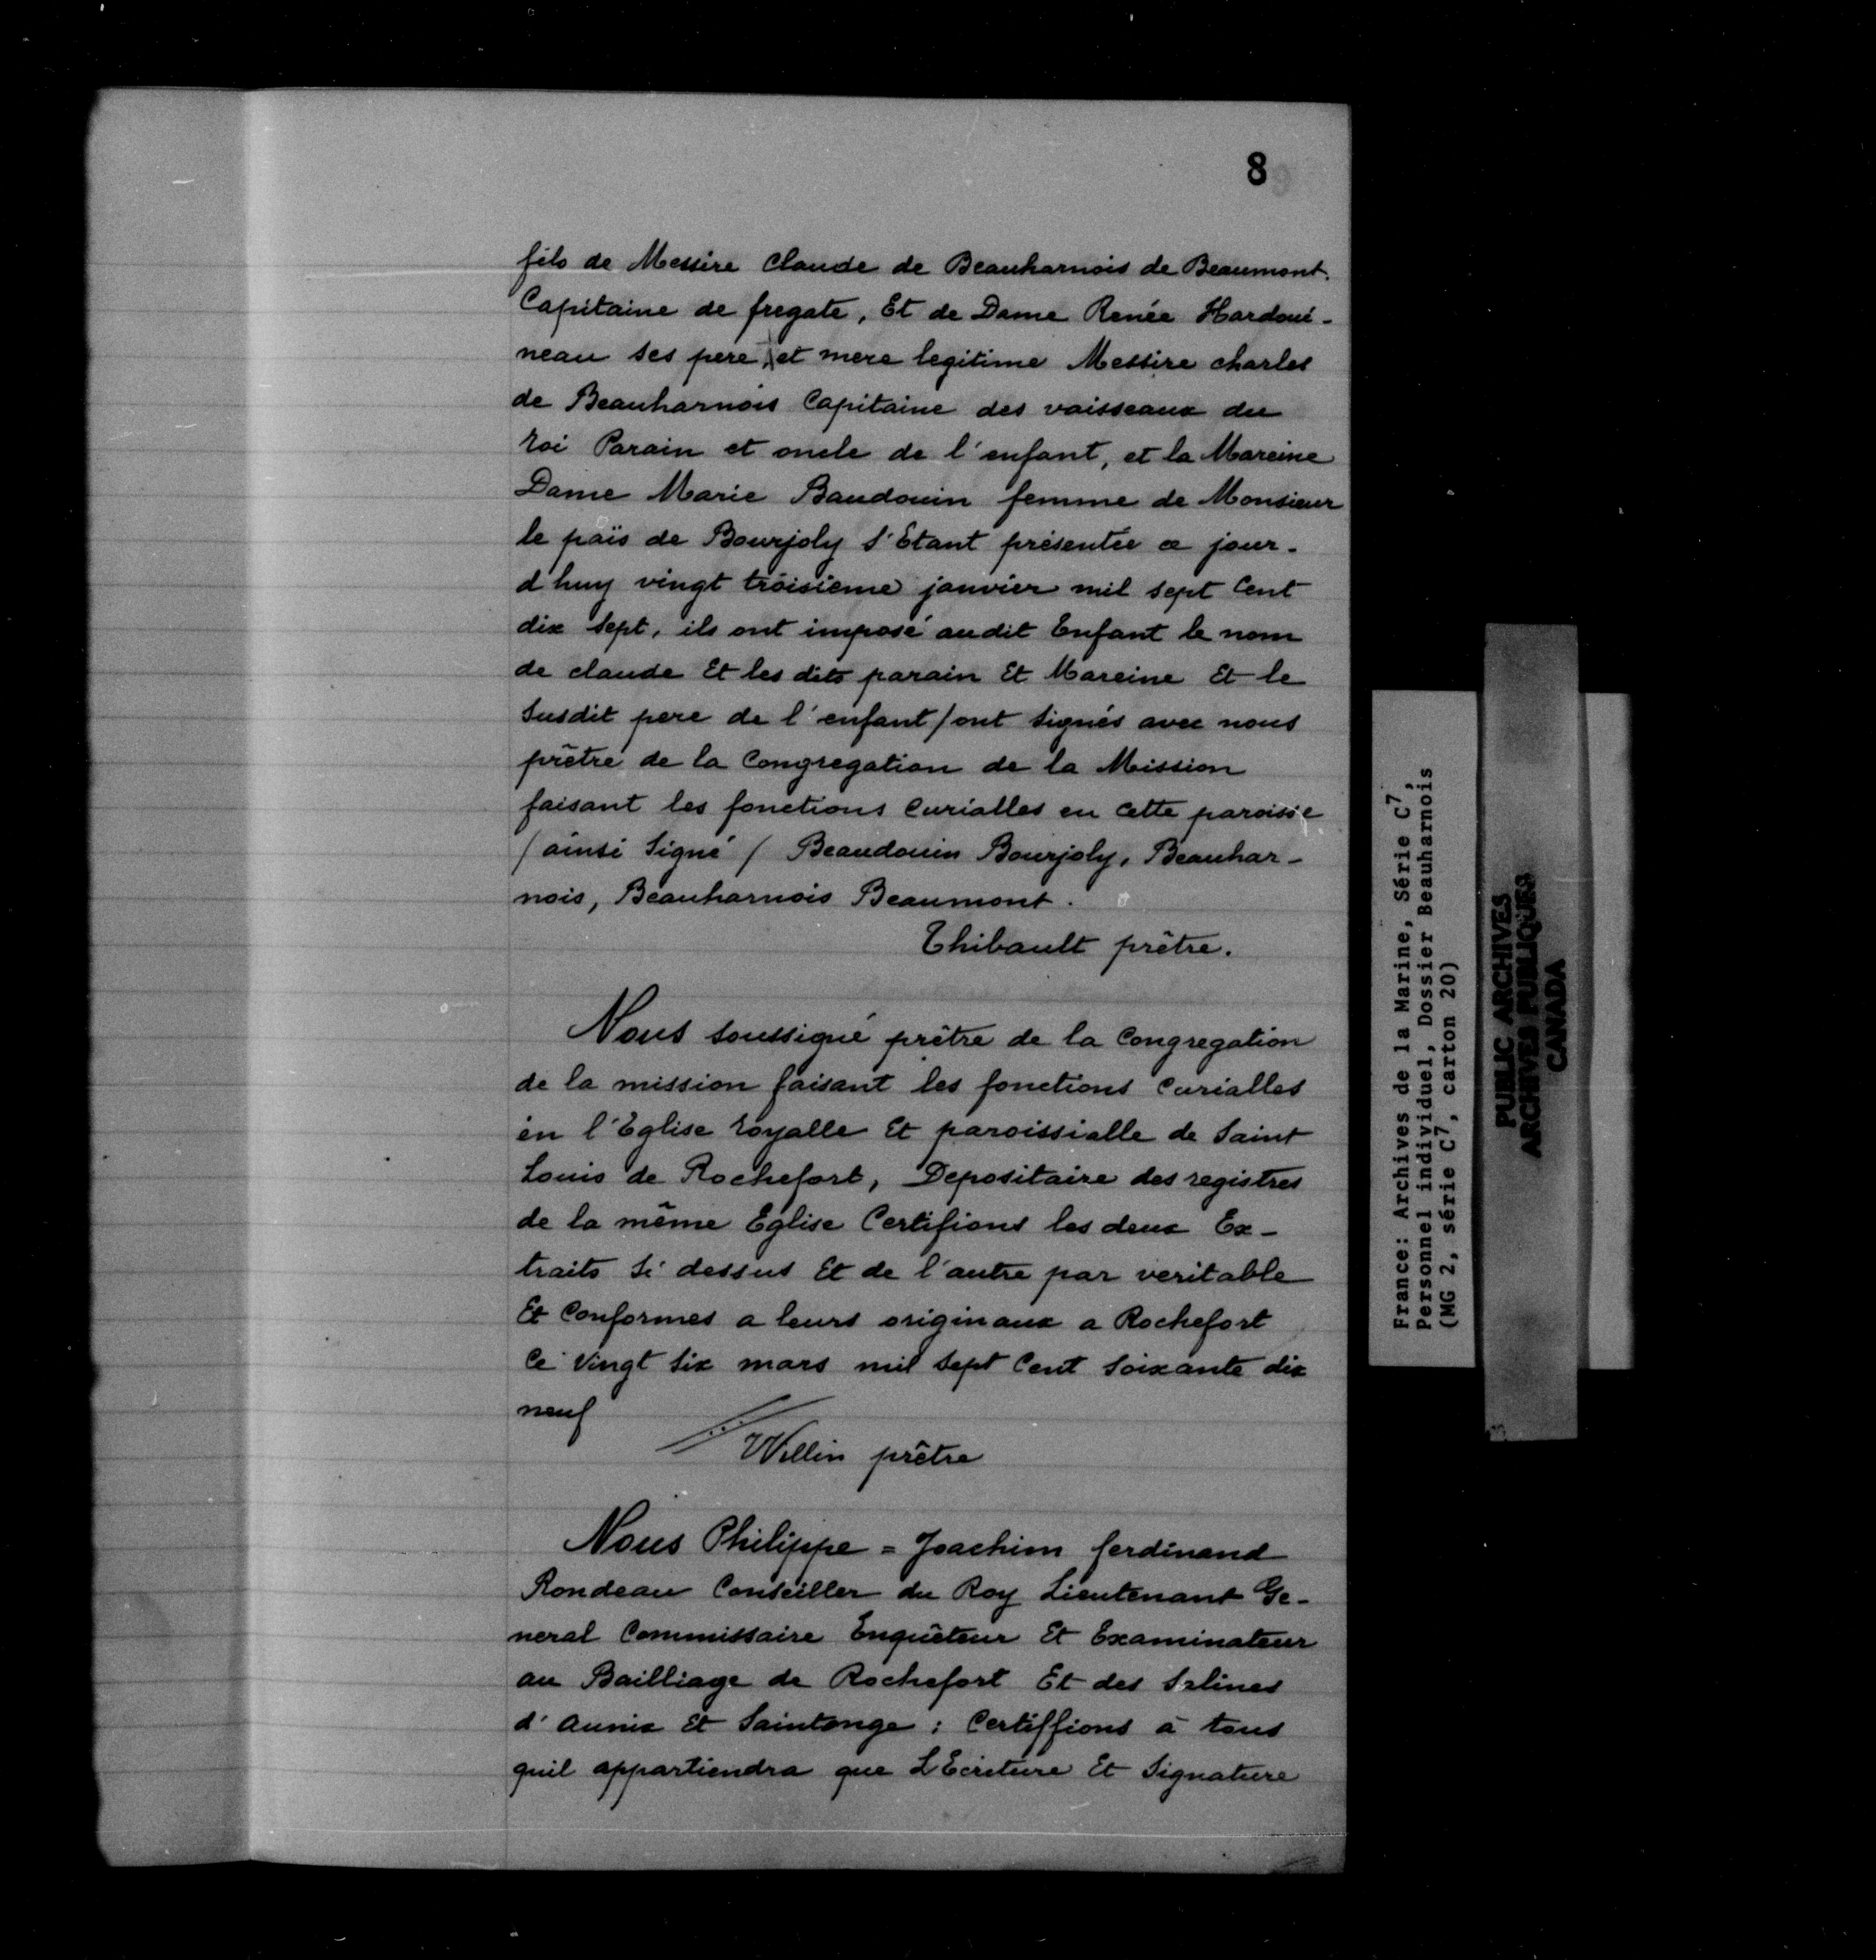 8
fils de Messire Claude de Beauharnois de Beaumont.
Capitaine de fregate, Et de Dame Renée Hardoui-
neau ses pere, et mere legitime Messire charles
de Beauharnois Capitaine des vaisseaux du
roi Parain et oncle de l'enfant, et la Mareine
Dame Marie Baudouin femme de Monsieur
le païs de Bourjoly s'Etant présentée ce jour-
d'huy vingt troisieme janvier mil sept Cent
dix sept, ils ont imposé audit Enfant le nom
de claude Et les dits parain Et Mareine Et le
susdit pere de l'enfant / ont signés avec nous
prêtre de la Congregation de la Mission
faisant les fonctions Curialles en cette paroisse
/ ainsi Signé / Beaudouin Bourjoly, Beauhar-
nois, Beauharnois Beaumont.
Thibault prêtre.
Nous soussigné prêtre de la Congregation
de la mission faisant les fonctions Curialles
en l'Eglise royalle Et paroissialle de Saint
Louis de Rochefort, Depositaire des registres
de la même Eglise Certifions les deux Ex-
traits si dessus Et de l'autre par veritable
Et Conformes a leurs originaux a Rochefort
Ce vingt six mars mil sept Cent soixante dix
neuf
Willin prêtre
Nous Philippe = Joachim ferdinand
Rondeau Conseiller du Roy Lieutenant Ge-
neral Commissaire Enquêteur Et Examinateur
au Bailliage de Rochefort Et des Salines
d'aunix Et Saintonge : Certiffions à tous
quil appartiendra que L'Ecriture Et Signature
France: Archives de la Marine, Série C7,
Personnel individuel, Dossier Beauharnois
(MG 2, série C7, carton 20)
PUBLIC ARCHIVES
ARCHIVES PUBLIQUES
CANADA